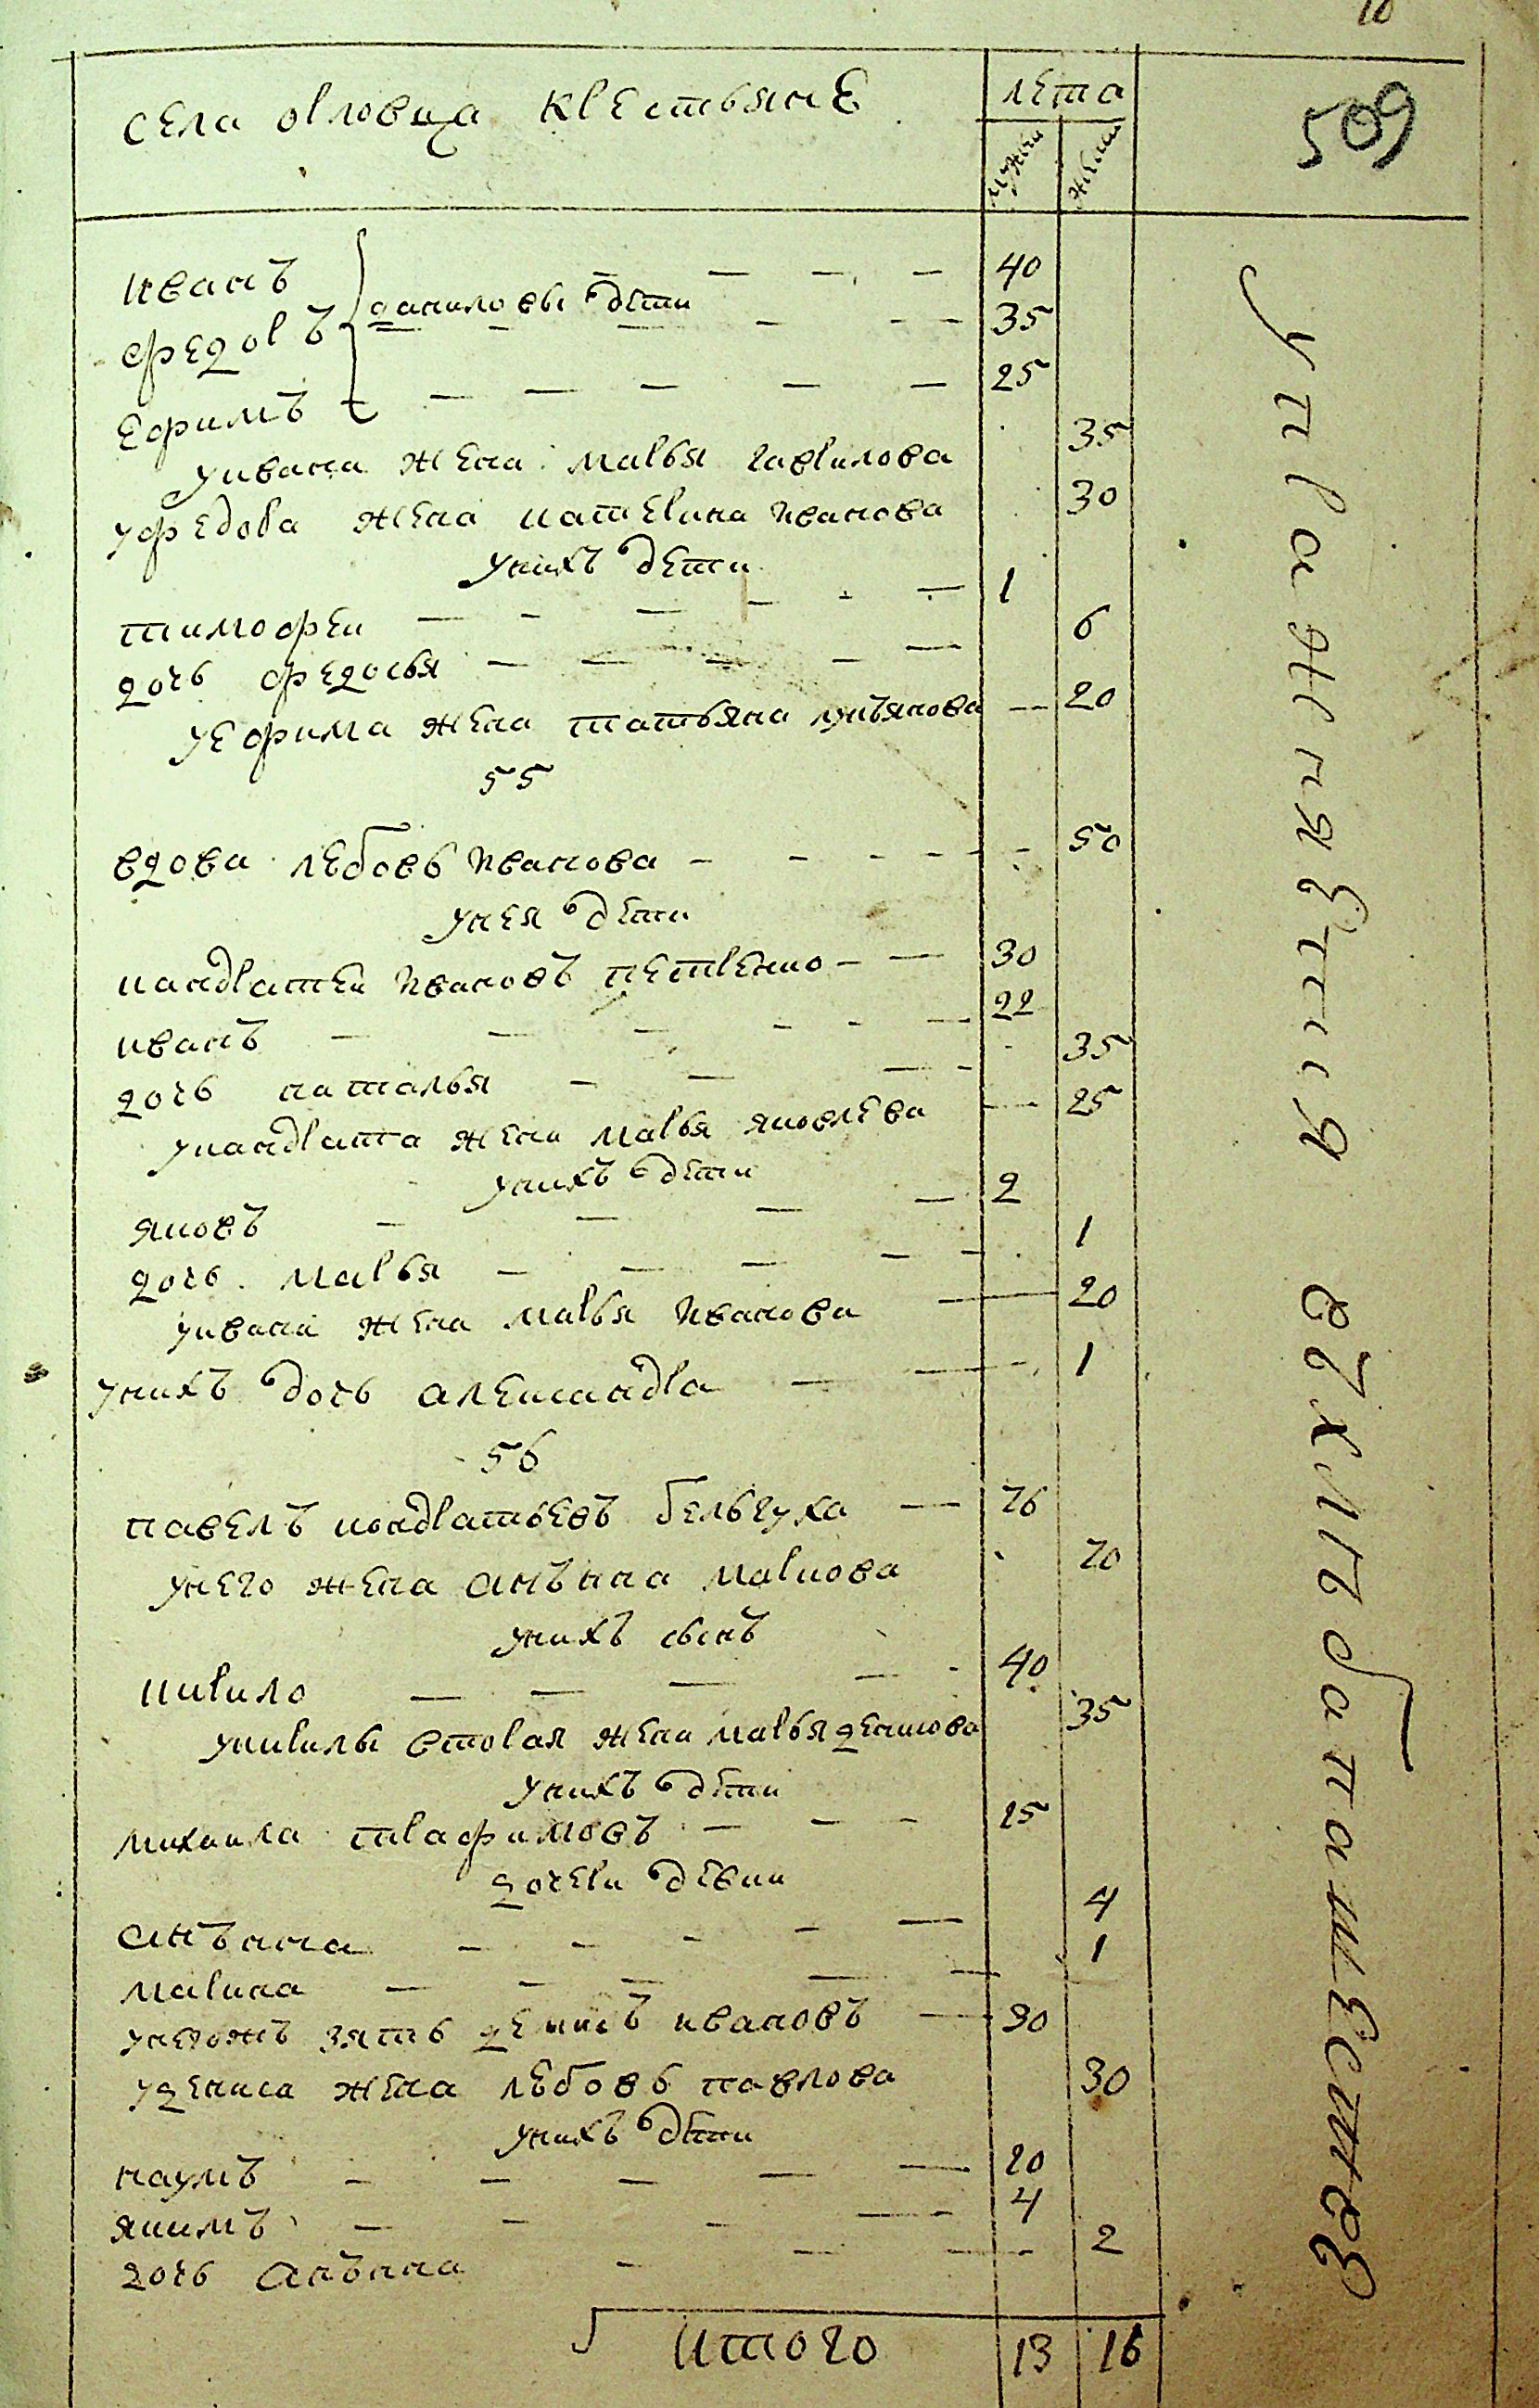 10
села орловца крестьяне
лета
мужеска
женска
509
иванъ 40
федоръ даниловы дети 35
ефимъ 25
уивана жена марья гаврилова 35
уфедора жена катерина иванова 30
унихъ дети
тимофеи 1
дочь федосья 6
уефима жена татьяна лукъянова 20
55
вдова лебовь иванова 50
унея дети
кандратеи ивановъ петренко 30
иванъ 22
дочь наталья 35
укандрата жена марья яковлева 25
унихъ дети
яковъ 2
дочь марья 1
уивана жена марья иванова 20
унихъ дочь александра 1
56
павелъ кондратьевъ бельчуха 76
унего жена анъна маркова 70
унихъ сынъ
кирило 40
укирилы вторая жена марья денисова 35
унихъ дети
михаила трафимовъ 15
дочери девки
анъна 4
марина 1
унегожъ зять денисъ ивановъ 30
удениса жена лебовь павлова 30
унихъ дети
наумъ 10
якимъ 4
дочь анъна 2
итого 13 16
упражнения вихлибапашества